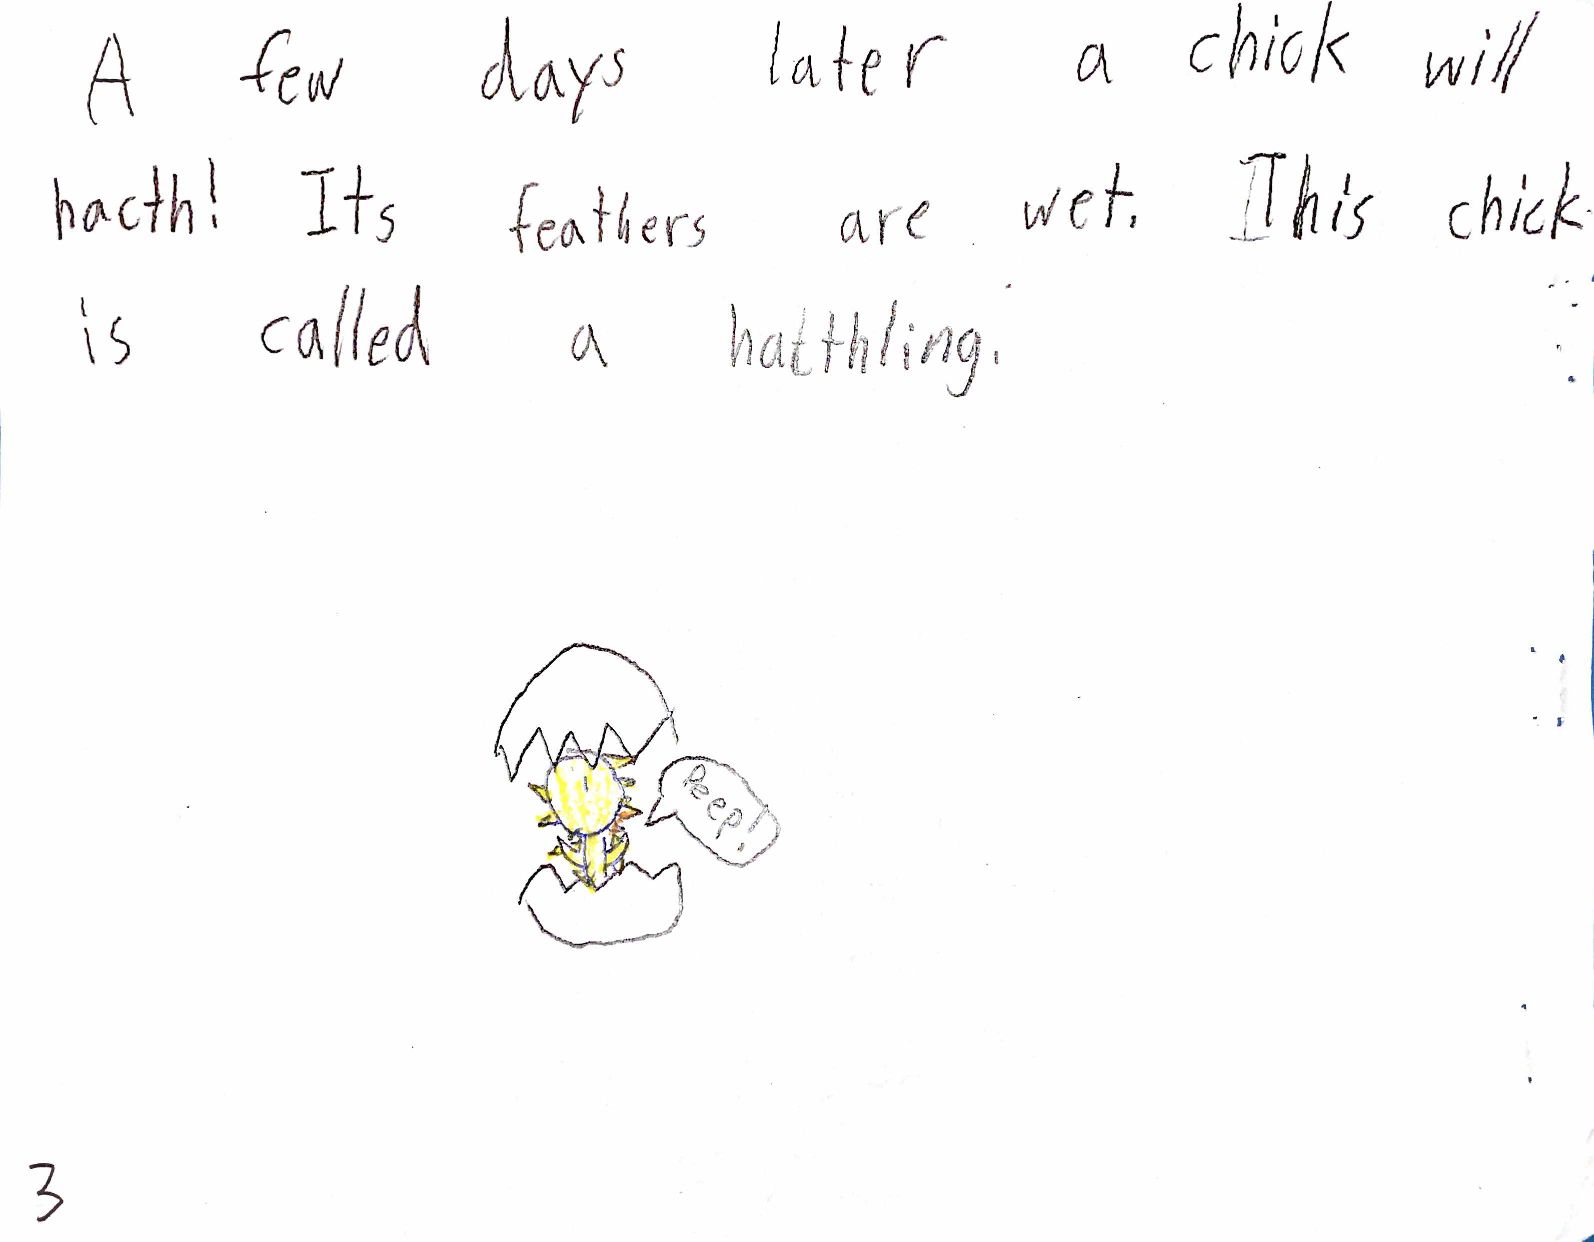 A few days later a chick will
hacth! Its feathers are wet. This chick
is called a hatthling.
Peep!
3